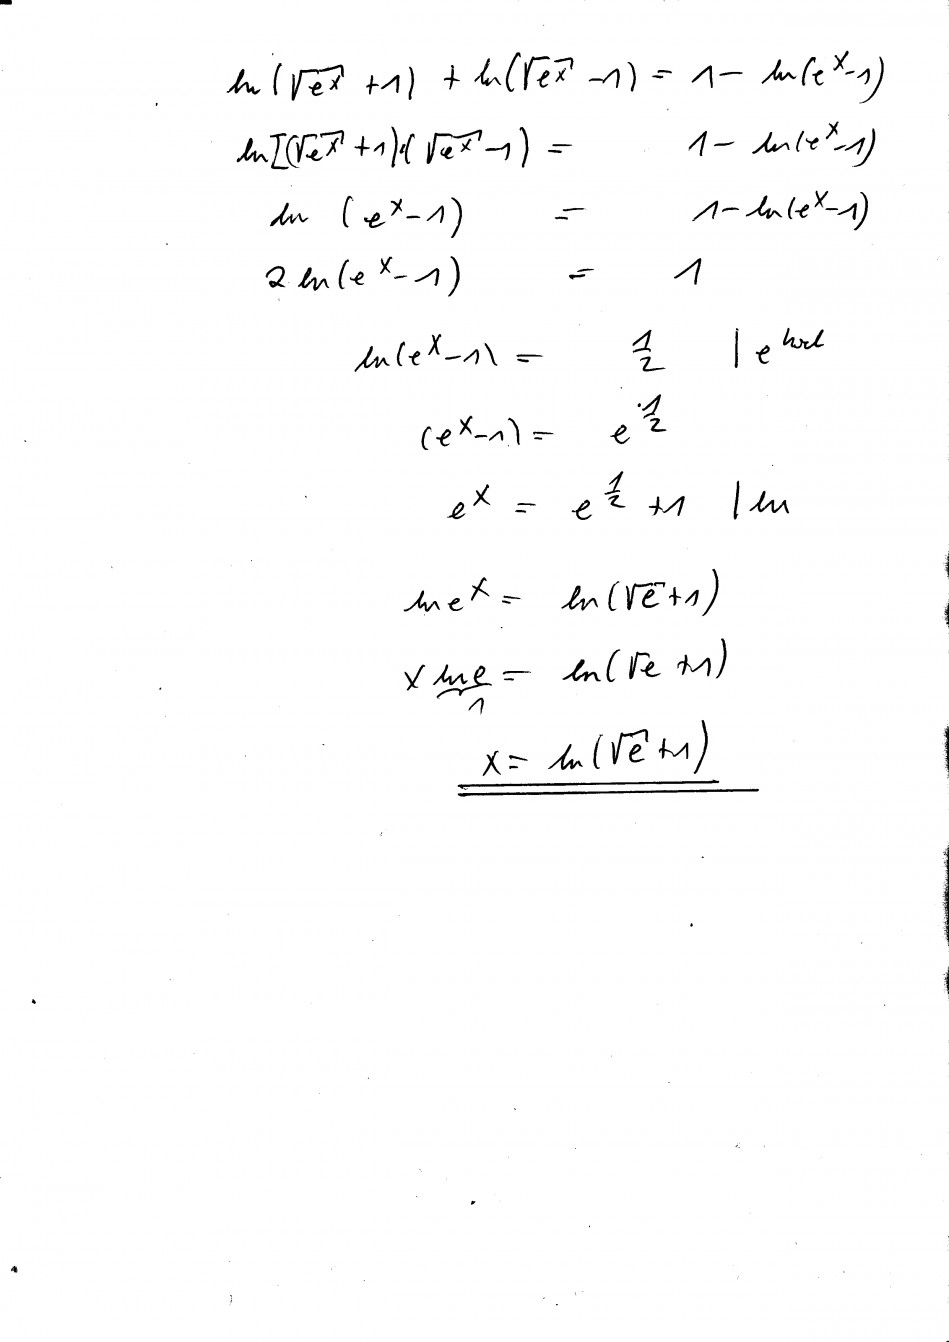 ln(√eˣ +1) + ln(√eˣ -1) = 1 - ln(eˣ-1)
ln[(√eˣ +1)·(√eˣ -1) = 1 - ln(eˣ-1)
ln (eˣ-1) = 1 - ln(eˣ-1)
2 ln(eˣ-1) = 1
ln(eˣ-1) = 1/2 | e^hoch
(eˣ-1) = e^1/2
eˣ = e^1/2 +1 | ln
ln eˣ = ln(√e+1)
x ln e = ln(√e +1)
1
x = ln(√e +1)